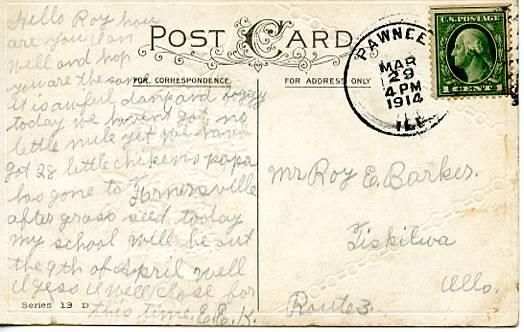 POST CARD
FOR CORRESPONDENCE
FOR ADDRESS ONLY
Hello Roy how
are you I am
well and hop
you are the same
it is awful damp and foggy
today we havent got no
little mule yet we have
got 28 little chickens papa
has gone to Farnersville
after grass seed today
my school will be out
the 9th of April well
I gess I will close for
this time. E.E.K.
Series 13 D
PAWNEE
MAR
29
4 PM
1914
ILL.
U.S. POSTAGE
1 CENT 1
Mr Roy E. Barker.
Tiskilwa
Ills.
Route 3.